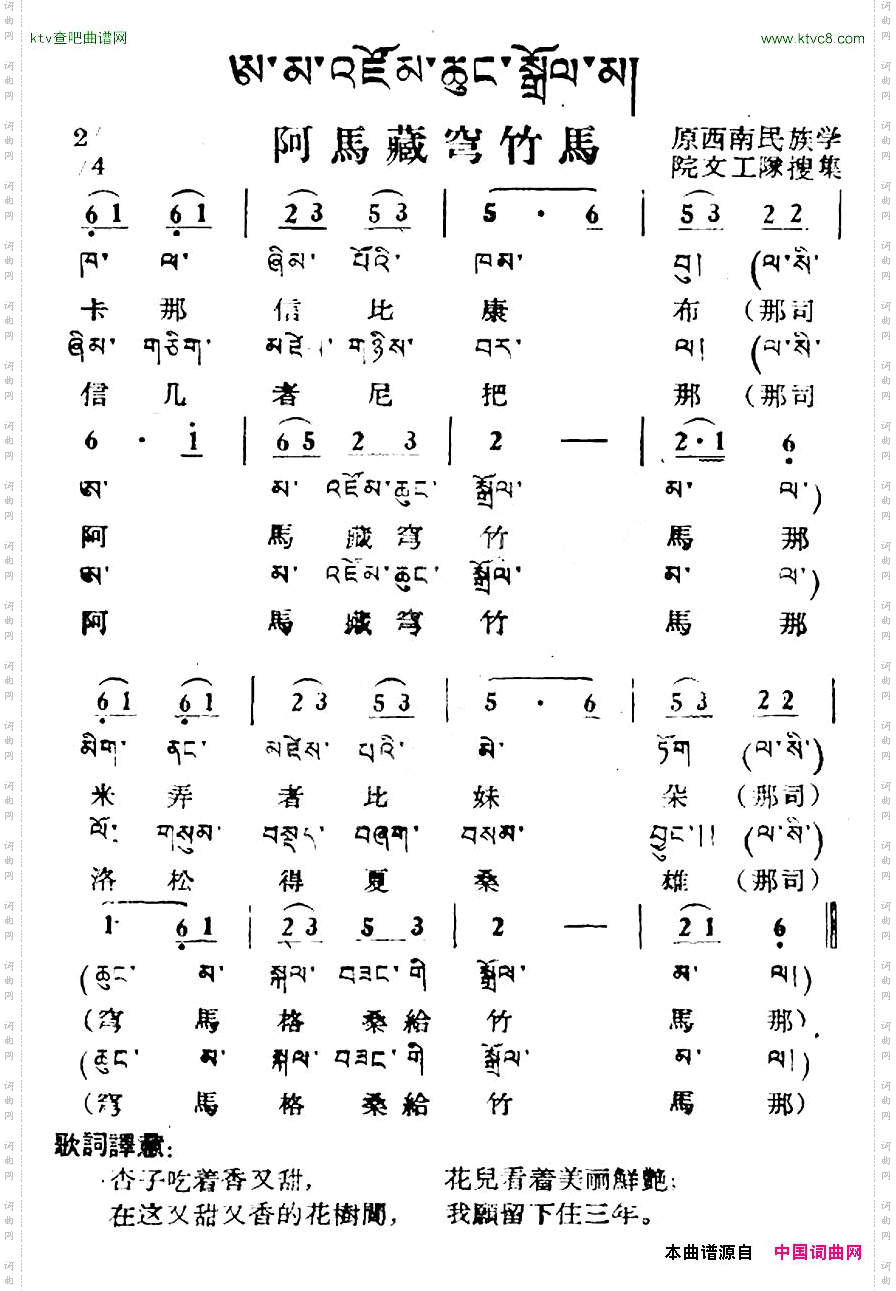 ktv查吧曲谱网 www.ktvc8.com
ཨ་མ་འཛོམ་ཆུང་སྒྲོལ་མ།
2/4 阿馬藏穹竹馬 原西南民族学
院文工隊搜集
6 1 6 1 | 2 3 5 3 | 5 · 6 | 5 3 2 2 |
ཁ་ ལ་ ཞིམ་ པོའི་ ཁམ་ བུ། (ལ་སི་
卡 那 信 比 康 布 (那司
ཞིམ་ གཅིག་ མཛེ གཉིས་ བར་ ལ། (ལ་སི་
信 几 者 尼 把 那 (那司
6 · 1 | 6 5 2 3 | 2 — | 2 · 1 6
ཨ་ མ་ འཛོམ་ཆུང་ སྒྲོལ་ མ་ ལ་)
阿 馬 藏 穹 竹 馬 那
ཨ་ མ་ འཛོམ་ཆུང་ སྒྲོལ་ མ་ ལ་)
阿 馬 藏 穹 竹 馬 那
6 1 6 1 | 2 3 5 3 | 5 · 6 | 5 3 2 2 |
མིག་ ནང་ མཛེས་ པའི་ མེ་ ཏོག (ལ་སི་)
米 弄 者 比 妹 朵 (那司)
ལོ་ གསུམ་ བསྡད་ བཞག་ བསམ་ བྱུང་།། (ལ་སི་)
洛 松 得 夏 桑 雄 (那司)
1 6 1 | 2 3 5 3 | 2 — | 2 1 6 ‖
(ཆུང་ མ་ སྐལ་ བཟང་ གི སྒྲོལ་ མ་ ལ།)
(穹 馬 格 桑 給 竹 馬 那)
(ཆུང་ མ་ སྐལ་ བཟང་ གི སྒྲོལ་ མ་ ལ།)
(穹 馬 格 桑 給 竹 馬 那)
歌詞譯意:
杏子吃着香又甜, 花兒看着美丽鮮艷;
在这又甜又香的花樹間, 我願留下住三年。
本曲谱源自 中国词曲网